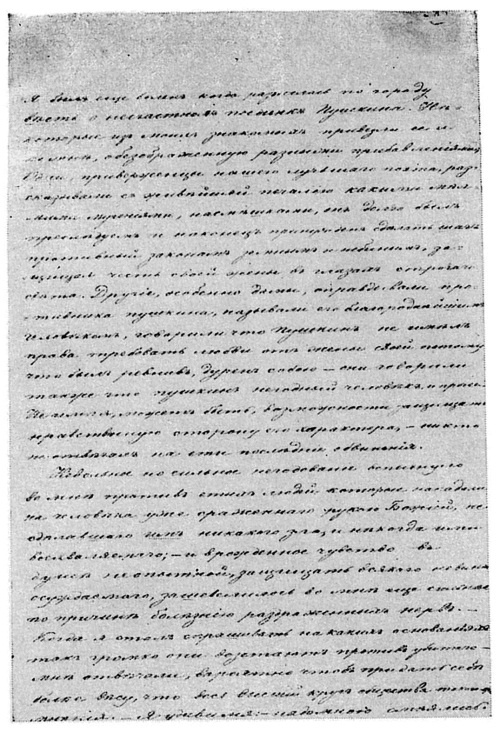 Я былъ еще боленъ когда разнеслась по городу
вѣсть о несчастномъ поединкѣ Пушкина. Нѣ-
которые изъ моихъ знакомыхъ привезли ее и
ко мнѣ, обезображенную разными прибавленіями
Одни, приверженцы нашего лучшаго поэта, раз-
сказывали съ живѣйшей печалью какими мел-
кими мученіями, насмѣшками, онъ долго былъ
преслѣдуемъ и наконецъ принужденъ сдѣлать шагъ
противный законамъ земнымъ и небеснымъ, за-
щищая честь своей жены въ глазахъ строгаго
свѣта. Другіе, особенно дамы, оправдывали про-
тивника Пушкина, называли его благороднѣйшимъ
человѣкомъ, говорили что Пушкинъ не имѣлъ
права требовать любви отъ жены своей потому
что былъ ревнивъ, дуренъ собою — они говорили
также что Пушкинъ негодный человѣкъ и проч.
Не имѣя, можетъ быть, возможности защищать
нравственную сторону его характера, — никто
не отвѣчалъ на эти послѣднія обвиненія.
Невольное но сильное негодованіе вспыхнуло
во мнѣ противъ этихъ людей которые нападали
на человѣка уже сраженнаго рукою Божіей, не
сдѣлавшаго имъ никакого зла, и нѣкогда ими
восхваляемаго; — и врожденное чувство въ
душѣ неопытной, защищать всякаго невинно
осуждаемаго, зашевелилось во мнѣ еще сильнѣе
по причинѣ болѣзнію раздраженныхъ нервъ. —
Когда я сталъ спрашивать на какихъ основаніяхъ
такъ громко они возстаютъ противъ убитаго —
мнѣ отвѣчали, вѣроятно чтобъ придать себѣ
болѣе вѣсу, что весь высшій кругъ общества такого
мнѣнія. — Я удивился: — надо мною смѣялись.